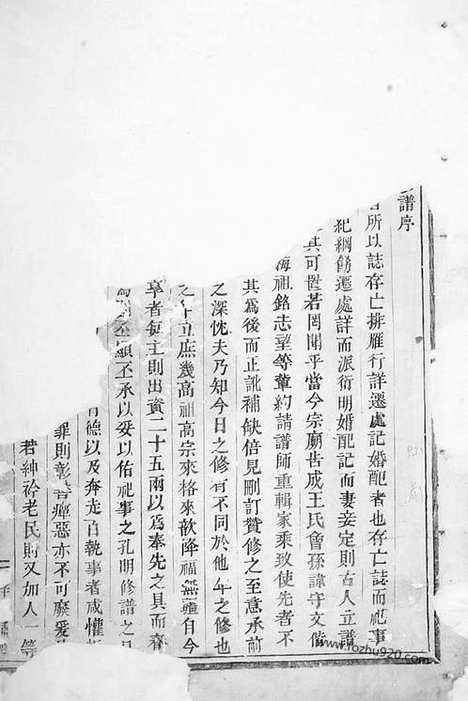 譜序
所以誌存亡排雁行詳遷處記婚配者也存亡誌而祀事
紀綱飭遷處詳而派衍明婚配記而妻妾定則古人立譜
其可暫若罔聞乎當今宗廟告成王氏會孫諱守文偕
海祖銘志望等輩約請譜師重輯家乘致使先者不
其為後而正訛補缺倍見刪訂贊修之至意承前
之深忱夫乃知今日之修有不同於他年之修也
之年立庶幾高祖高宗來格來歆降福無疆自今
宰者每主則出資二十五兩以為奉先之具而齋
丕顯丕承以妥以佑祀事之孔明修譜之
德以及奔走百執事者咸懼
罪則彰善癉惡亦不可廢爰
若紳衿老民則又加人一等
www.1ozhu920.com